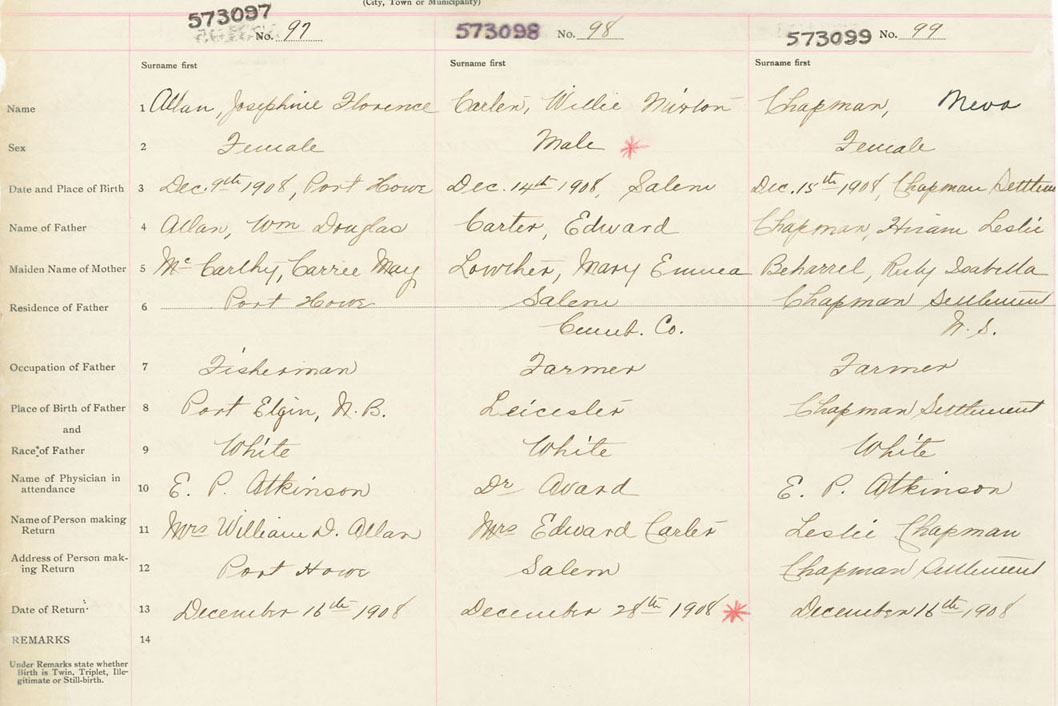 (City, Town or Municipality)
573097 No. 97 573098 No. 98 573099 No. 99
Surname first Surname first Surname first
Name 1 Allan, Josephine Florence Carter, Willie Chapman, Meva
Sex 2 Female Male * Female
Date and Place of Birth 3 Dec. 9th 1908, Port Howe Dec. 14th 1908, Salem Dec. 15th 1908, Chapman Settlem
Name of Father 4 Allan, Wm Douglas Carter, Edward Chapman, Hiram Leslie
Maiden Name of Mother 5 Mc Carthy, Carrie May Lowther, Mary Emmea Beharrel, Ruby Isabella
Residence of Father 6 Port Howe Salem Chapman Settlement
Cumb. Co. N. S.
Occupation of Father 7 Fisherman Farmer Farmer
Place of Birth of Father 8 Port Elgin, N. B. Leicester Chapman Settlement
and
Race of Father 9 White White White
Name of Physician in
attendance 10 E. P. Atkinson Dr Avard E. P. Atkinson
Name of Person making
Return 11 Mrs William D. Allan Mrs Edward Carter Leslie Chapman
Address of Person mak-
ing Return 12 Port Howe Salem Chapman Settlement
Date of Return 13 December 16th 1908 December 28th 1908 * December 16th 1908
REMARKS 14
Under Remarks state whether
Birth is Twin, Triplet, Ille-
gitimate or Still-birth.